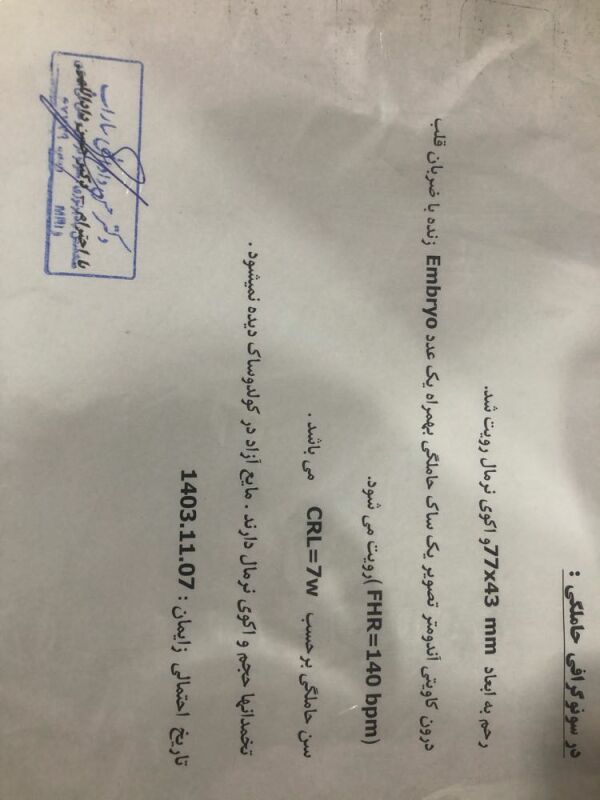 در سونوگرافی حاملگی :
رحم به ابعاد 77x43 mm و اکوی نرمال رویت شد.
درون کاویتی آندومتر تصویر یک ساک حاملگی بهمراه یک عدد Embryo زنده با ضربان قلب
(FHR=140 bpm) رویت می شود.
سن حاملگی برحسب CRL=7w می باشد .
تخمدانها حجم و اکوی نرمال دارند . مایع آزاد در کولدوساک دیده نمیشود .
تاریخ احتمالی زایمان : 1403.11.07
با احترام
دکتر